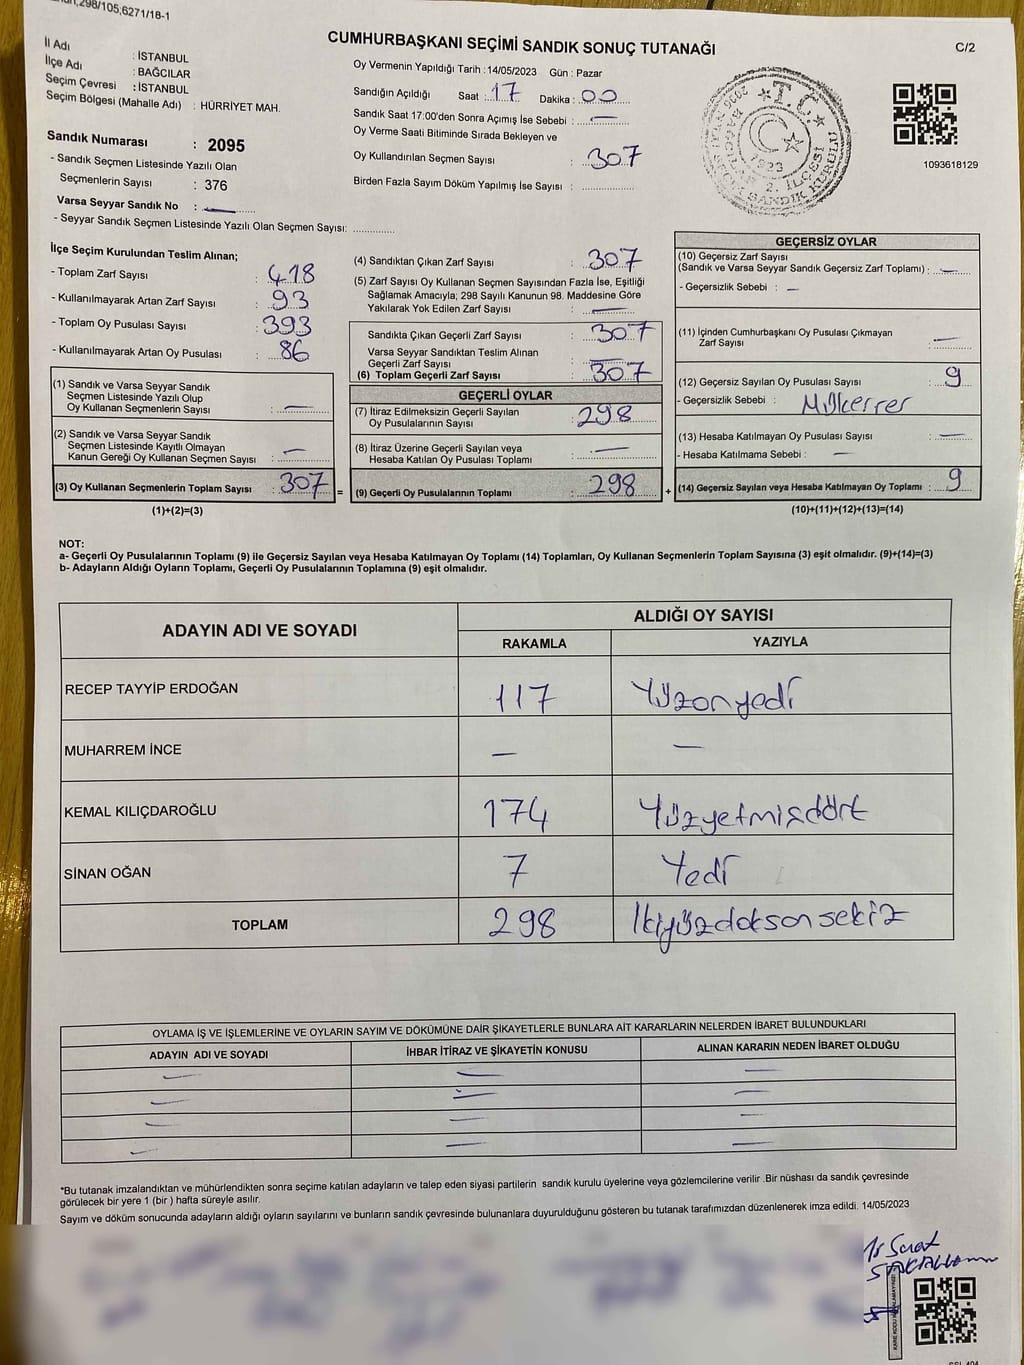 298/105,6271/18-1
CUMHURBAŞKANI SEÇİMİ SANDIK SONUÇ TUTANAĞI
C/2
İl Adı : İSTANBUL
İlçe Adı : BAĞCILAR
Seçim Çevresi : İSTANBUL
Seçim Bölgesi (Mahalle Adı) : HÜRRİYET MAH.
Sandık Numarası : 2095
- Sandık Seçmen Listesinde Yazılı Olan
Seçmenlerin Sayısı : 376
Varsa Seyyar Sandık No : —
- Seyyar Sandık Seçmen Listesinde Yazılı Olan Seçmen Sayısı: ..............
Oy Vermenin Yapıldığı Tarih : 14/05/2023 Gün : Pazar
Sandığın Açıldığı Saat : 17 Dakika : 00
Sandık Saat 17:00'den Sonra Açımış İse Sebebi : —
Oy Verme Saati Bitiminde Sırada Bekleyen ve
Oy Kullandırılan Seçmen Sayısı : 307
Birden Fazla Sayım Döküm Yapılmış İse Sayısı : ..............
T.C.
1923
2. İLÇESİ
1093618129
İlçe Seçim Kurulundan Teslim Alınan;
- Toplam Zarf Sayısı : 418
- Kullanılmayarak Artan Zarf Sayısı : 93
- Toplam Oy Pusulası Sayısı : 393
- Kullanılmayarak Artan Oy Pusulası : 86
(1) Sandık ve Varsa Seyyar Sandık
Seçmen Listesinde Yazılı Olup
Oy Kullanan Seçmenlerin Sayısı : —
(2) Sandık ve Varsa Seyyar Sandık
Seçmen Listesinde Kayıtlı Olmayan
Kanun Gereği Oy Kullanan Seçmen Sayısı : —
(3) Oy Kullanan Seçmenlerin Toplam Sayısı : 307 =
(1)+(2)=(3)
(4) Sandıktan Çıkan Zarf Sayısı : 307
(5) Zarf Sayısı Oy Kullanan Seçmen Sayısından Fazla İse, Eşitliği
Sağlamak Amacıyla; 298 Sayılı Kanunun 98. Maddesine Göre
Yakılarak Yok Edilen Zarf Sayısı : —
Sandıkta Çıkan Geçerli Zarf Sayısı : 307
Varsa Seyyar Sandıktan Teslim Alınan
Geçerli Zarf Sayısı : —
(6) Toplam Geçerli Zarf Sayısı : 307
GEÇERLİ OYLAR
(7) İtiraz Edilmeksizin Geçerli Sayılan
Oy Pusulalarının Sayısı : 298
(8) İtiraz Üzerine Geçerli Sayılan veya
Hesaba Katılan Oy Pusulası Toplamı : —
(9) Geçerli Oy Pusulalarının Toplamı : 298 +
GEÇERSİZ OYLAR
(10) Geçersiz Zarf Sayısı
(Sandık ve Varsa Seyyar Sandık Geçersiz Zarf Toplamı) : —
- Geçersizlik Sebebi : —
(11) İçinden Cumhurbaşkanı Oy Pusulası Çıkmayan
Zarf Sayısı : —
(12) Geçersiz Sayılan Oy Pusulası Sayısı : 9
- Geçersizlik Sebebi : Mükerrer
(13) Hesaba Katılmayan Oy Pusulası Sayısı : —
- Hesaba Katılmama Sebebi : —
(14) Geçersiz Sayılan veya Hesaba Katılmayan Oy Toplamı : 9
(10)+(11)+(12)+(13)=(14)
NOT:
a- Geçerli Oy Pusulalarının Toplamı (9) ile Geçersiz Sayılan veya Hesaba Katılmayan Oy Toplamı (14) Toplamları, Oy Kullanan Seçmenlerin Toplam Sayısına (3) eşit olmalıdır. (9)+(14)=(3)
b- Adayların Aldığı Oyların Toplamı, Geçerli Oy Pusulalarının Toplamına (9) eşit olmalıdır.
ADAYIN ADI VE SOYADI ALDIĞI OY SAYISI
RAKAMLA YAZIYLA
RECEP TAYYİP ERDOĞAN 117 Yüzonyedi
MUHARREM İNCE — —
KEMAL KILIÇDAROĞLU 174 Yüzyetmişdört
SİNAN OĞAN 7 Yedi
TOPLAM 298 İkiyüzdoksansekiz
OYLAMA İŞ VE İŞLEMLERİNE VE OYLARIN SAYIM VE DÖKÜMÜNE DAİR ŞİKAYETLERLE BUNLARA AİT KARARLARIN NELERDEN İBARET BULUNDUKLARI
ADAYIN ADI VE SOYADI İHBAR İTİRAZ VE ŞİKAYETİN KONUSU ALINAN KARARIN NEDEN İBARET OLDUĞU
— — —
— — —
— — —
— — —
*Bu tutanak imzalandıktan ve mühürlendikten sonra seçime katılan adayların ve talep eden siyasi partilerin sandık kurulu üyelerine veya gözlemcilerine verilir .Bir nüshası da sandık çevresinde
görülecek bir yere 1 (bir ) hafta süreyle asılır.
Sayım ve döküm sonucunda adayların aldığı oyların sayılarını ve bunların sandık çevresinde bulunanlara duyurulduğunu gösteren bu tutanak tarafımızdan düzenlenerek imza edildi. 14/05/2023